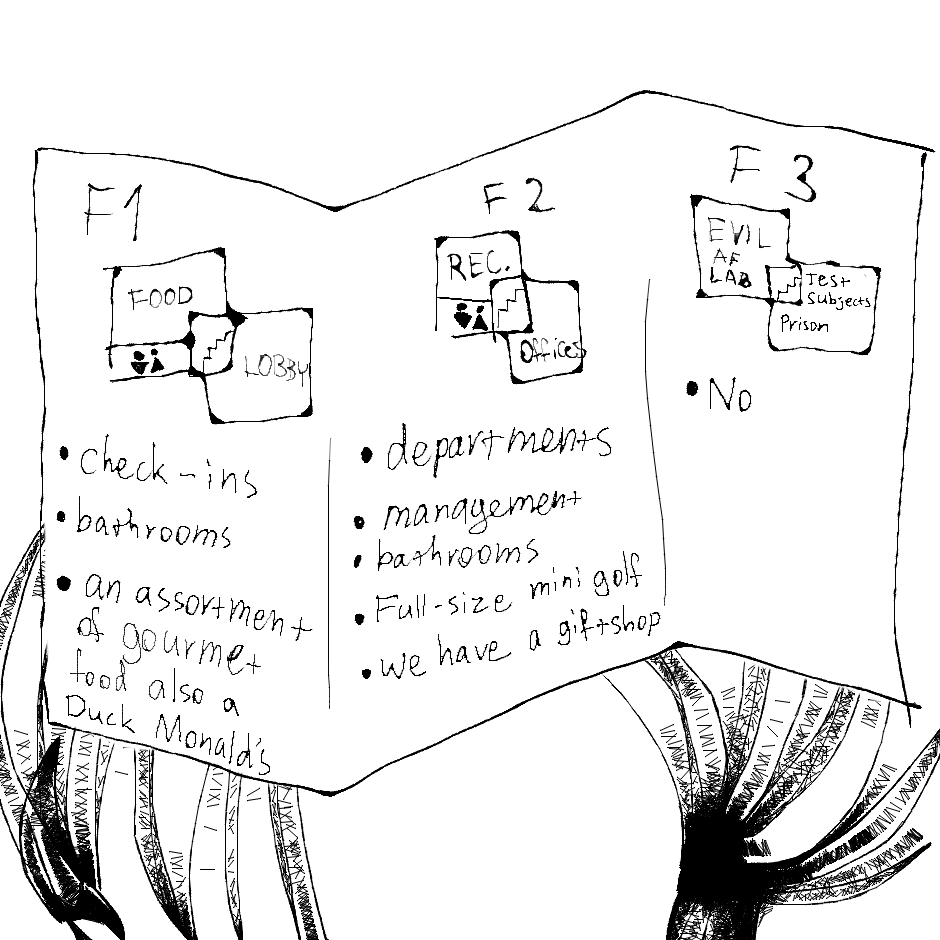 F1
FOOD
LOBBY
• check-ins
• bathrooms
• an assortment
of gourmet
food also a
Duck Monald's
F 2
REC.
Offices
• departments
• management
• bathrooms
• Full-size mini golf
• we have a giftshop
F 3
EVIL
AF
LAB
Test
Subjects
Prison
• No